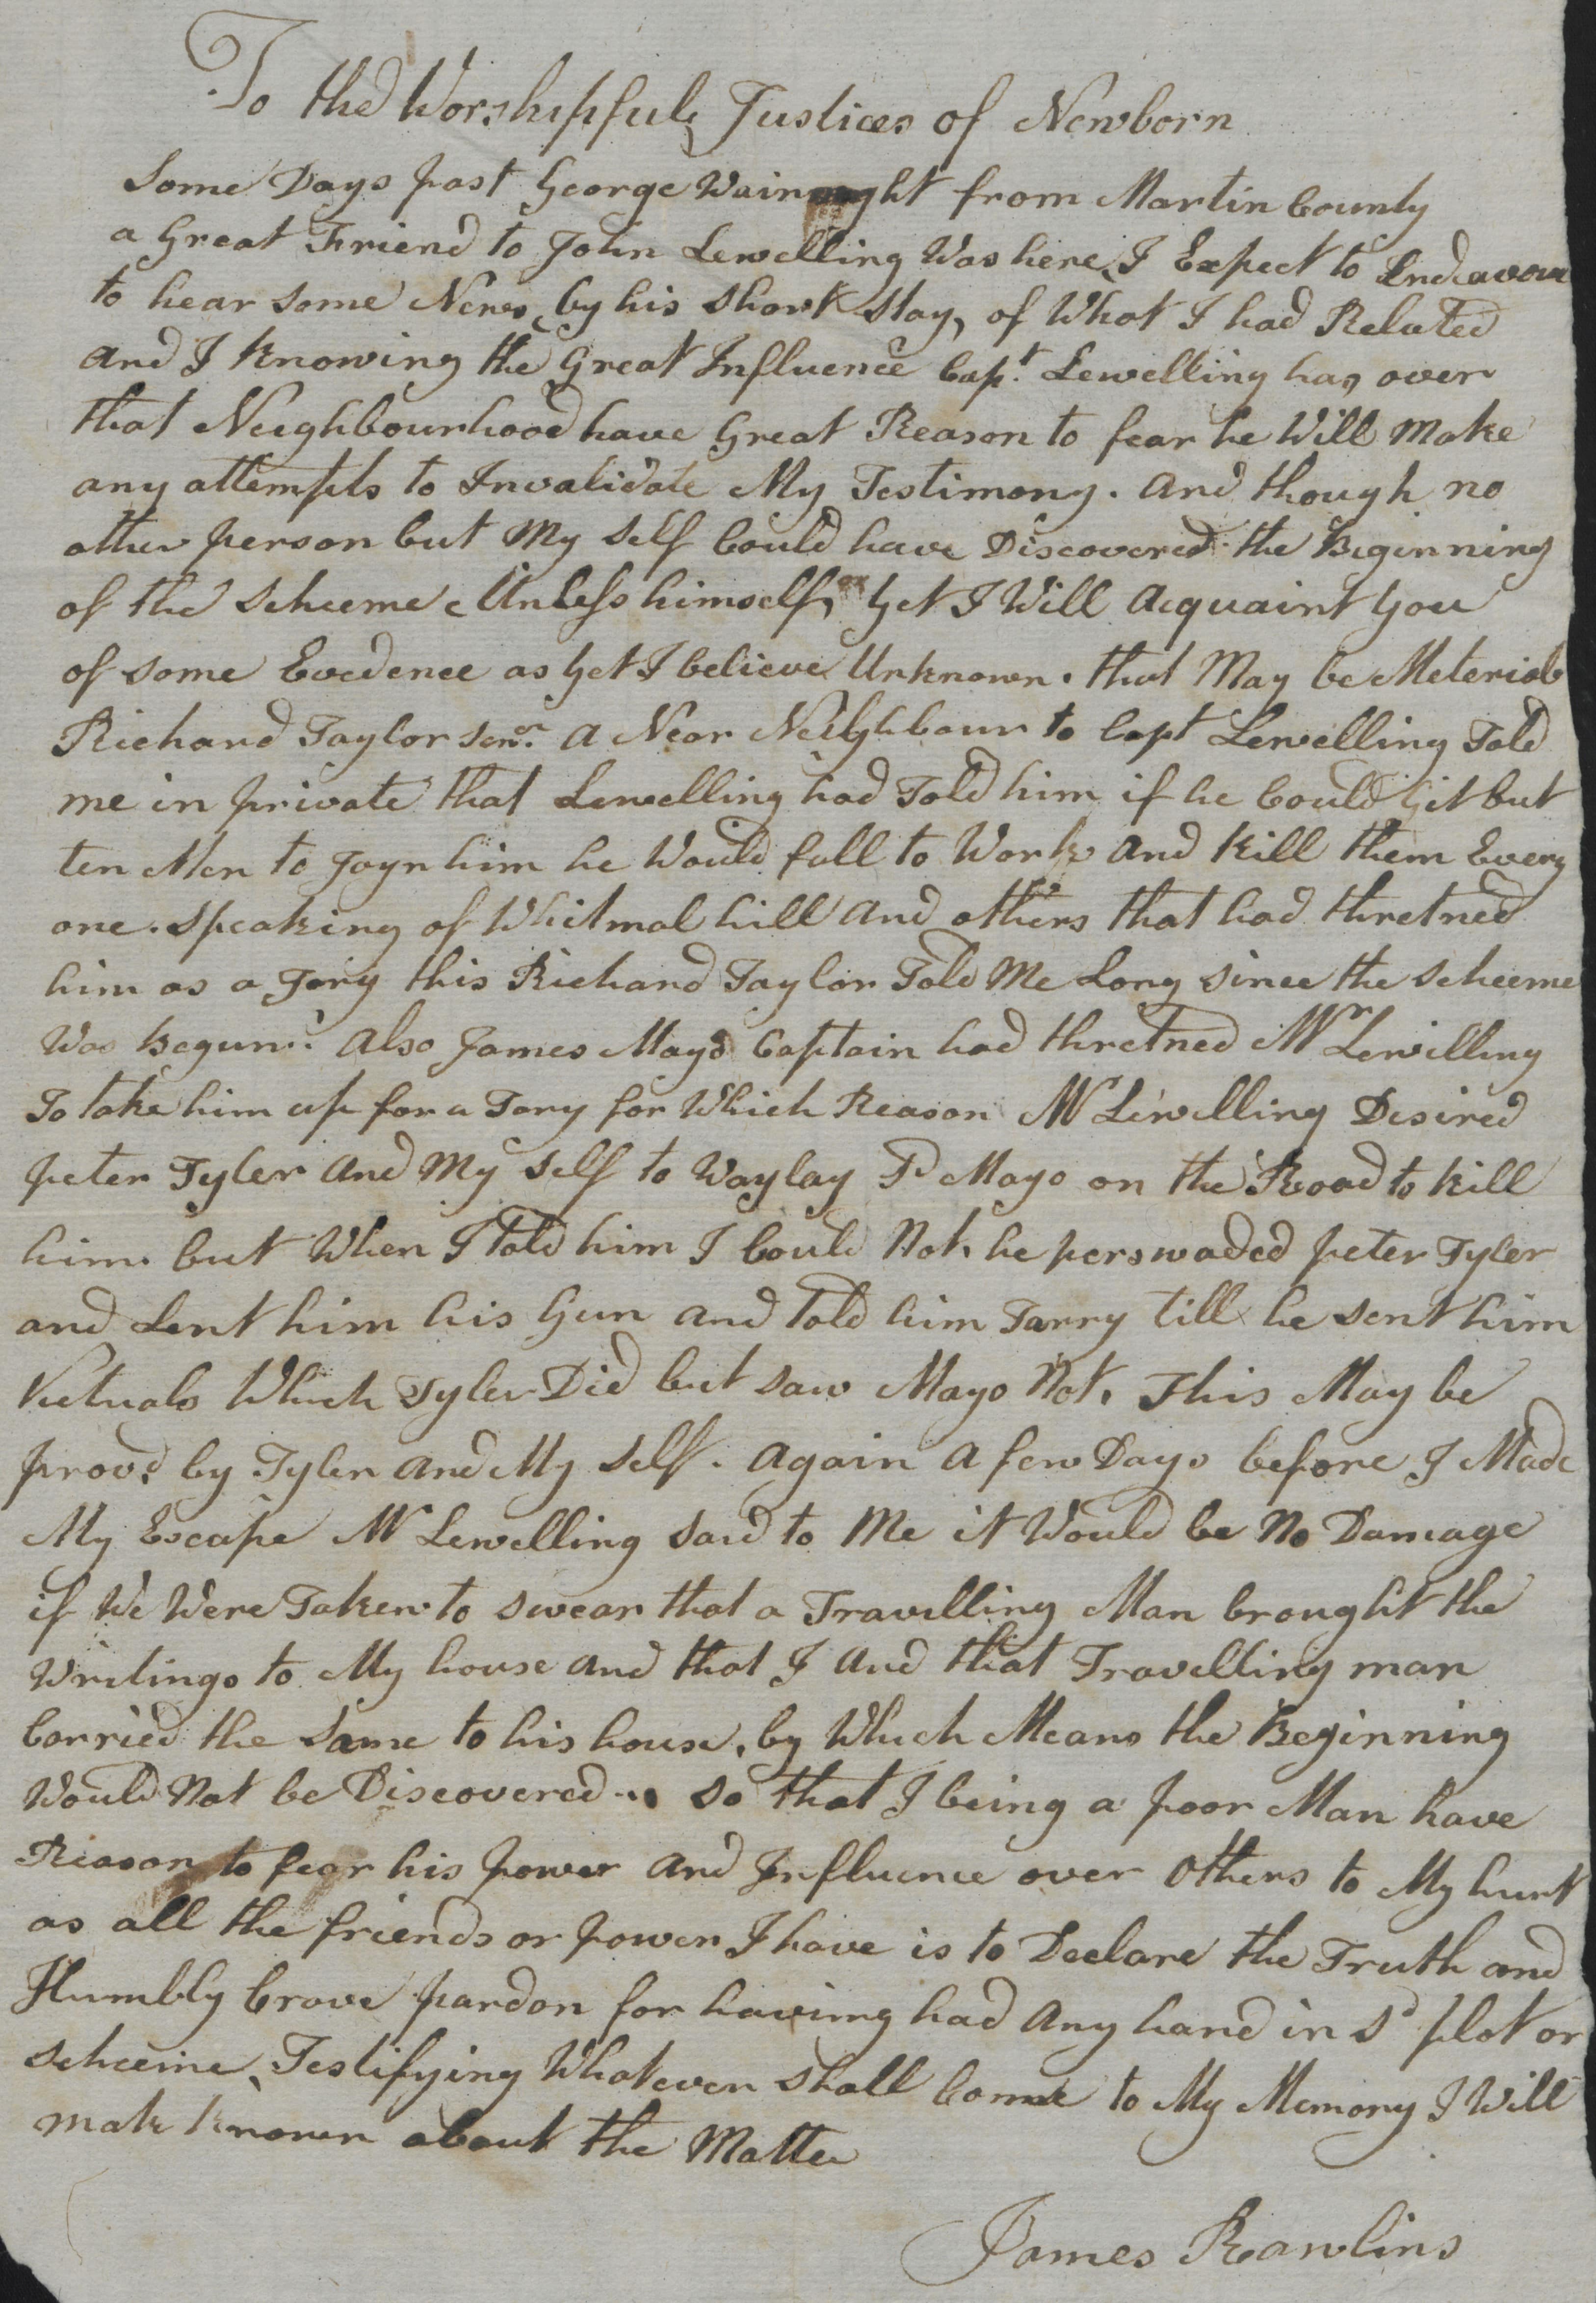 To the Worshipfull Justices of Newborn
Some Days past George Wainwright from Martin County
a Great Friend to John Lewelling Was here, I Expect to Endeavour
to hear some News, by his short stay, of What I had Related
and I knowing the Great Influence Capt. Lewelling has over
that Neighbourhood have Great Reason to fear he Will Make
any attempts to Invalidate My Testimony. and though no
other person but My self Could have Discovered the Beginning
of the scheeme Unless himself, yet I Will acquaint you
of some Evedence as yet I believe Unknown. that May be Meterial
Richard Taylor senr. a Near Neighbour to Capt Lewelling Told
me in private that Lewelling had Told him if he Could Git but
ten Men to Joyn him he Would fall to Work and kill them Every
one. speaking of Whitmal hill and others that had thretned
him as a Tory this Richard Taylor Told Me Long since the scheeme
Was Begun. Also James Mayo Captain had thretned Mr Lewelling
To take him up for a Tory for Which Reason Mr Lewelling Desired
peter Tyler and My self to Waylay Sd Mayo on the Road to kill
him. but When I told him I Could Not, he perswaded peter Tyler
and Lent him his Gun and told him Tarry till he sent him
Victuals Which Tyler Did but saw Mayo Not. This May be
provd by Tyler and My self. again a few Days before I Made
My Escape Mr Lewelling said to Me it Would be No Damage
if We Were Taken to swear that a Travilling Man brought the
Writings to My house and that I and that Travelling man
Carried the same to his house, by Which Means the Beginning
Would Not be Discovered.. so that I being a poor Man have
Reason to fear his power and Influence over others to My hurt
as all the friends or power I have is to Declare the Truth and
Humbly Crave pardon for having had any hand in Sd plot or
scheeme, Testifying Whatever shall Come to My Memory I Will
make known about the Matter
James Rawlins